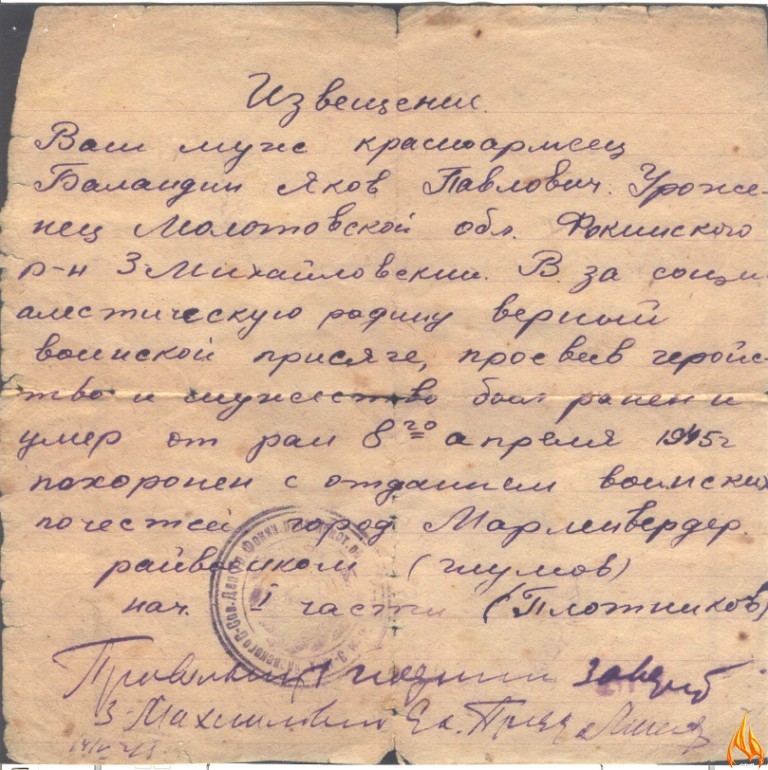 Извещение.
Ваш муж красноармеец
Баландин Яков Павлович. Уроже-
нец Молотовской обл. Фокинского
р-н З-Михайловский. В. за соции-
алестическую родину верный
воинской присяге, проевев геройс-
тво и мужество был ранен и
умер от ран 8го апреля 1945г
похоронен с отданием воинских
почестей город Мариенвердер
райвоенком (глумов)
нач. II части (Плотников)
З-Михайловский